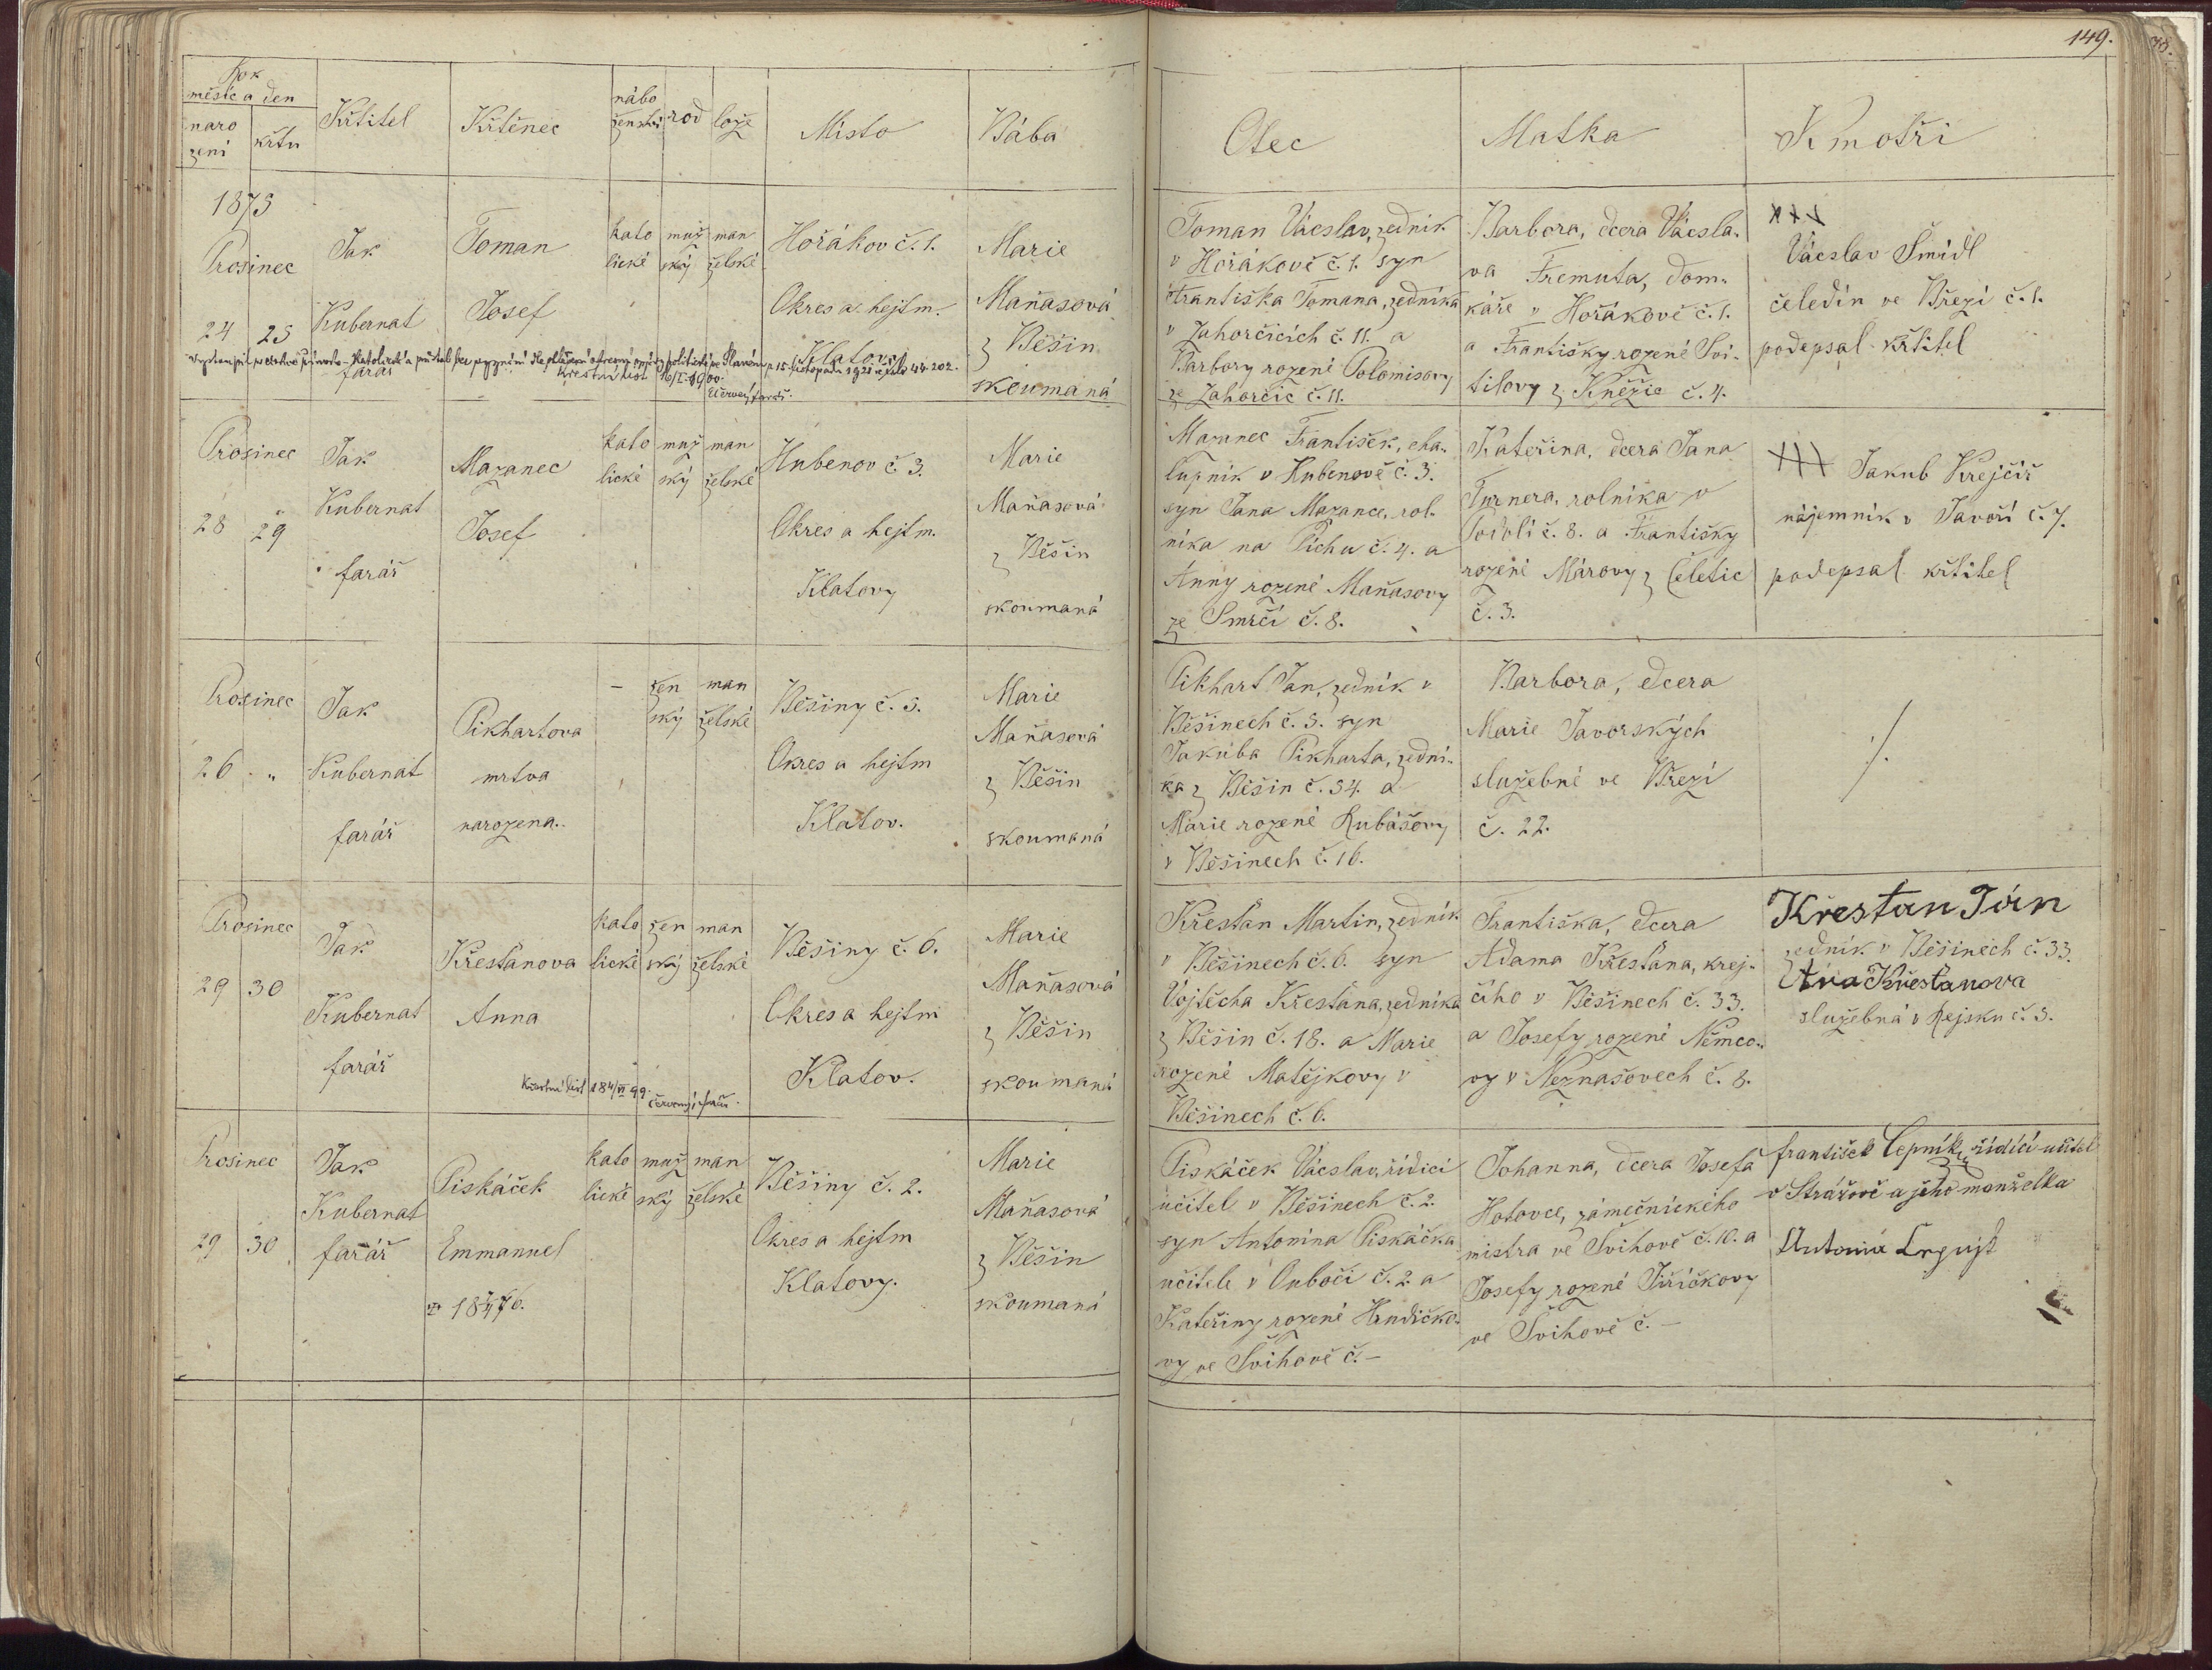 149.
Rok
měsíc a den
naro
zení
křtu
Křtitel
Křtěnec
nábo
ženství
rod
lože
Místo
Bába
Otec
Matka
Kmotři
1873
Prosinec
24 25
Jak
Kubernat
farář
Toman
Josef
kato
lické
muž
ský
man
želské
Hořákov č. 1.
Okres a hejtm.
Klatovy
Marie
Maňasová
z Běšin
skoumaná
Křestní list 16/I. 1900.
Červený farář.
Toman Vácslav, zedník
v Hořákově č. 1. syn
Františka Tomana, zedníka
v Zahorčicích č. 11. a
Barbory rozené Polomisovy
ze Zahorčic č. 11.
Barbora, dcera Vácsla-
va Fremuta, dom-
káře v Hořákově č. 1.
a Františky rozené Svi-
tilovy z Kněžic č. 4.
+++
Václav Šmidl
čeledín ve Březí č. 1.
podepsal křtitel
Prosinec
28 29
Jak
Kubernat
farář
Mazanec
Josef
kato
lické
muž
ský
man
želské
Hubenov č 3.
Okres a hejtm.
Klatovy
Marie
Maňasová
z Běšin
skoumaná
Mazanec František, cha-
lupník v Hubenově č. 3.
syn Jana Mazance, rol-
níka na Píchu č. 4. a
Anny rozené Maňasovy
ze Smrčí č. 8.
Kateřina, dcera Jana
Turnera, rolníka v
Podolí č. 8. a Františky
rozené Márovy z Čeletic
č. 3.
+++ Jakub Krejčíř
nájemník v Javoří č. 7.
podepsal křtitel
Prosinec
26 "
Jak
Kubernat
farář
Pikhartova
mrtva
narozena.
–
žen
ský
man
želské
Běšiny č. 5.
Okres a hejtm
Klatov.
Marie
Maňasová
z Běšin
skoumaná
Pikhart Jan, zedník v
Běšinech č. 5. syn
Jakuba Pikharta, zední-
ka z Běšin č. 54. a
Marie rozené Kubášovy
v Běšinech č. 16.
Barbora, dcera
Marie Javorských
služebné ve Březí
č. 22.
./.
Prosinec
29 30
Jak
Kubernat
farář
Křesťanova
Anna
kato
lické
žen
ský
man
želské
Běšiny č. 6.
Okres a hejtm
Klatov.
Marie
Maňasová
z Běšin
skoumaná
Křestní list 18 4/VI 99.
Červený, farář.
Křesťan Martin, zedník
v Běšinech č. 6. syn
Vojtěcha Křesťana, zedníka
z Běšin č. 18. a Marie
rozené Matějkovy v
Běšinech č. 6.
Františka, dcera
Adama Křesťana, krej-
čího v Běšinech č. 33.
a Josefy rozené Němco-
vy v Neznašovech č. 8.
Křestan Ján
zedník v Běšinech č. 33.
Ana Křesťanova
služebná v Rejsku č. 5.
Prosinec
29 30
Jak
Kubernat
farář
Piskáček
Emmanuel
kato
lické
muž
ský
man
želské
Běšiny č. 2.
Okres a hejtm
Klatovy.
Marie
Maňasová
z Běšin
skoumaná
Piskáček Vácslav, řídící
učitel v Běšinech č. 2.
syn Antonína Piskáčka
učitele v Ouboči č. 2 a
Kateřiny rozené Hrudičko-
vy ve Švihově č. –
Johanna, dcera Josefa
Hotovce, zámečnického
mistra ve Švihově č. 10. a
Josefy rozené Jiříčkovy
ve Švihově č. –
František Čepník, řídící učitel
v Strážově a jeho manželka